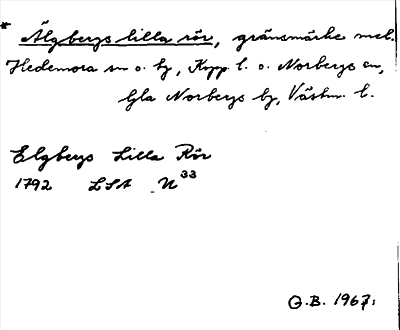 * Älgbergs lilla rör, gränsmärke mel.
Hedemora sn o. hg, Kopp l. o. Norbergs sn,
Gla Norbergs bg, Västm. l.
Elgbergs Lilla Rör
1792 LSA N 33
G.B. 1967.